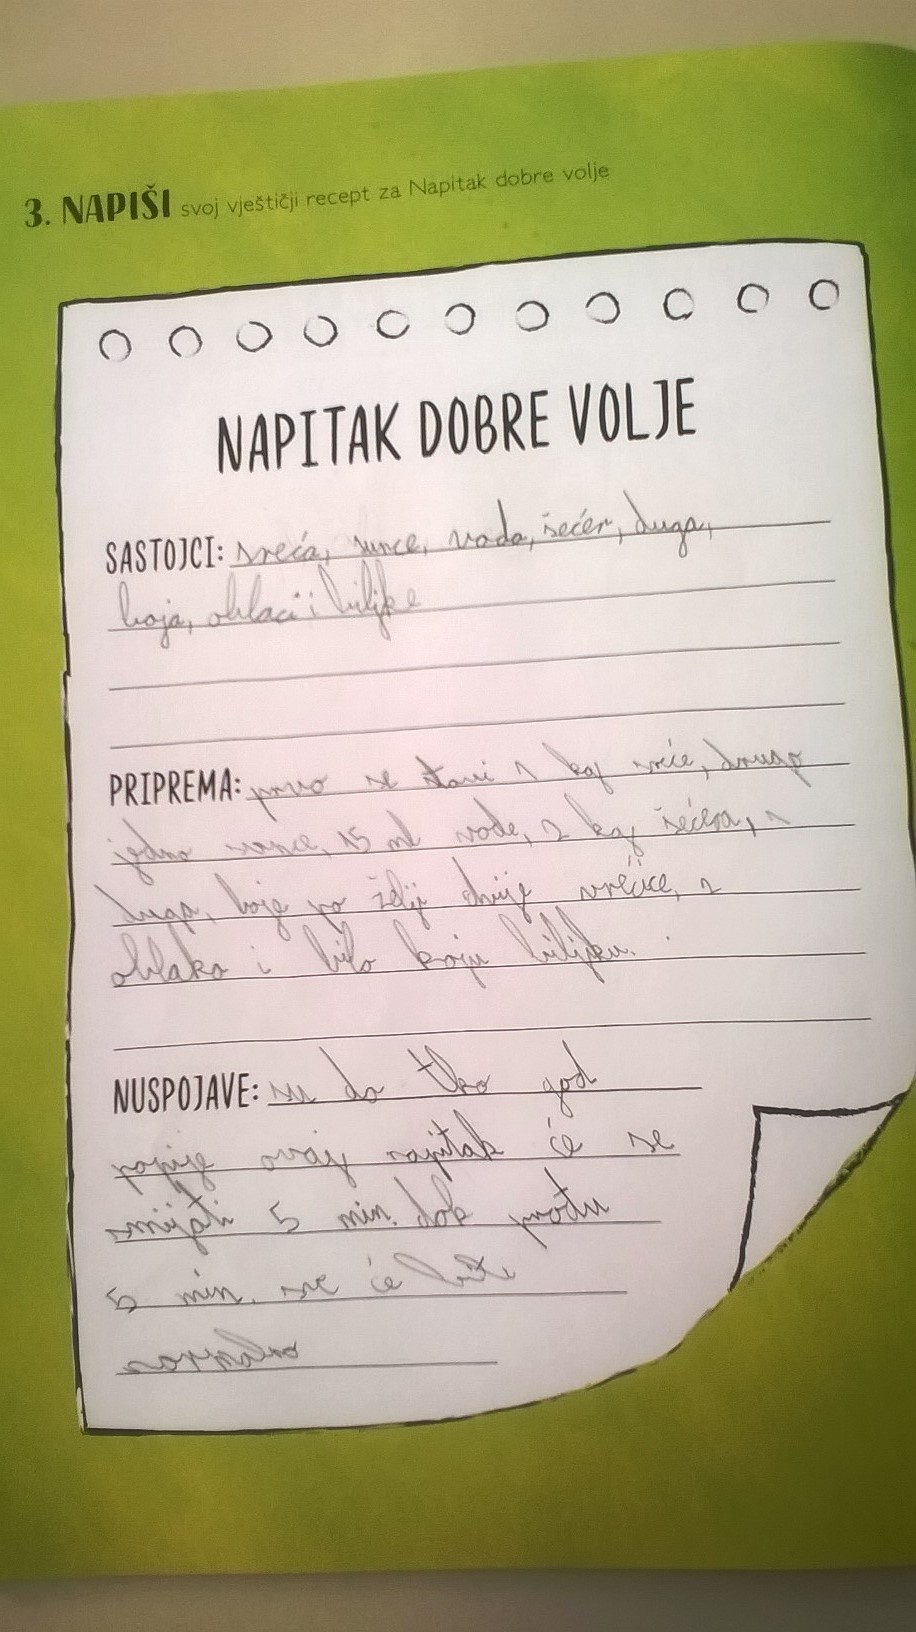 3. NAPIŠI svoj vještičji recept za Napitak dobre volje
NAPITAK DOBRE VOLJE
SASTOJCI: sreća, sunce, voda, šećer, duga,
boja, oblaci i biljke
PRIPREMA: prvo se stavi 1 kg sreće, drugo
jedno sunce, 15 ml vode, 2 kg šećera, 1
duga, boje po želji dvije vrećice, 2
oblaka i bilo koju biljku.
NUSPOJAVE: su da tko god
popije ovaj napitak će se
smijati 5 min. dok prođu
5 min. sve će biti
normalno